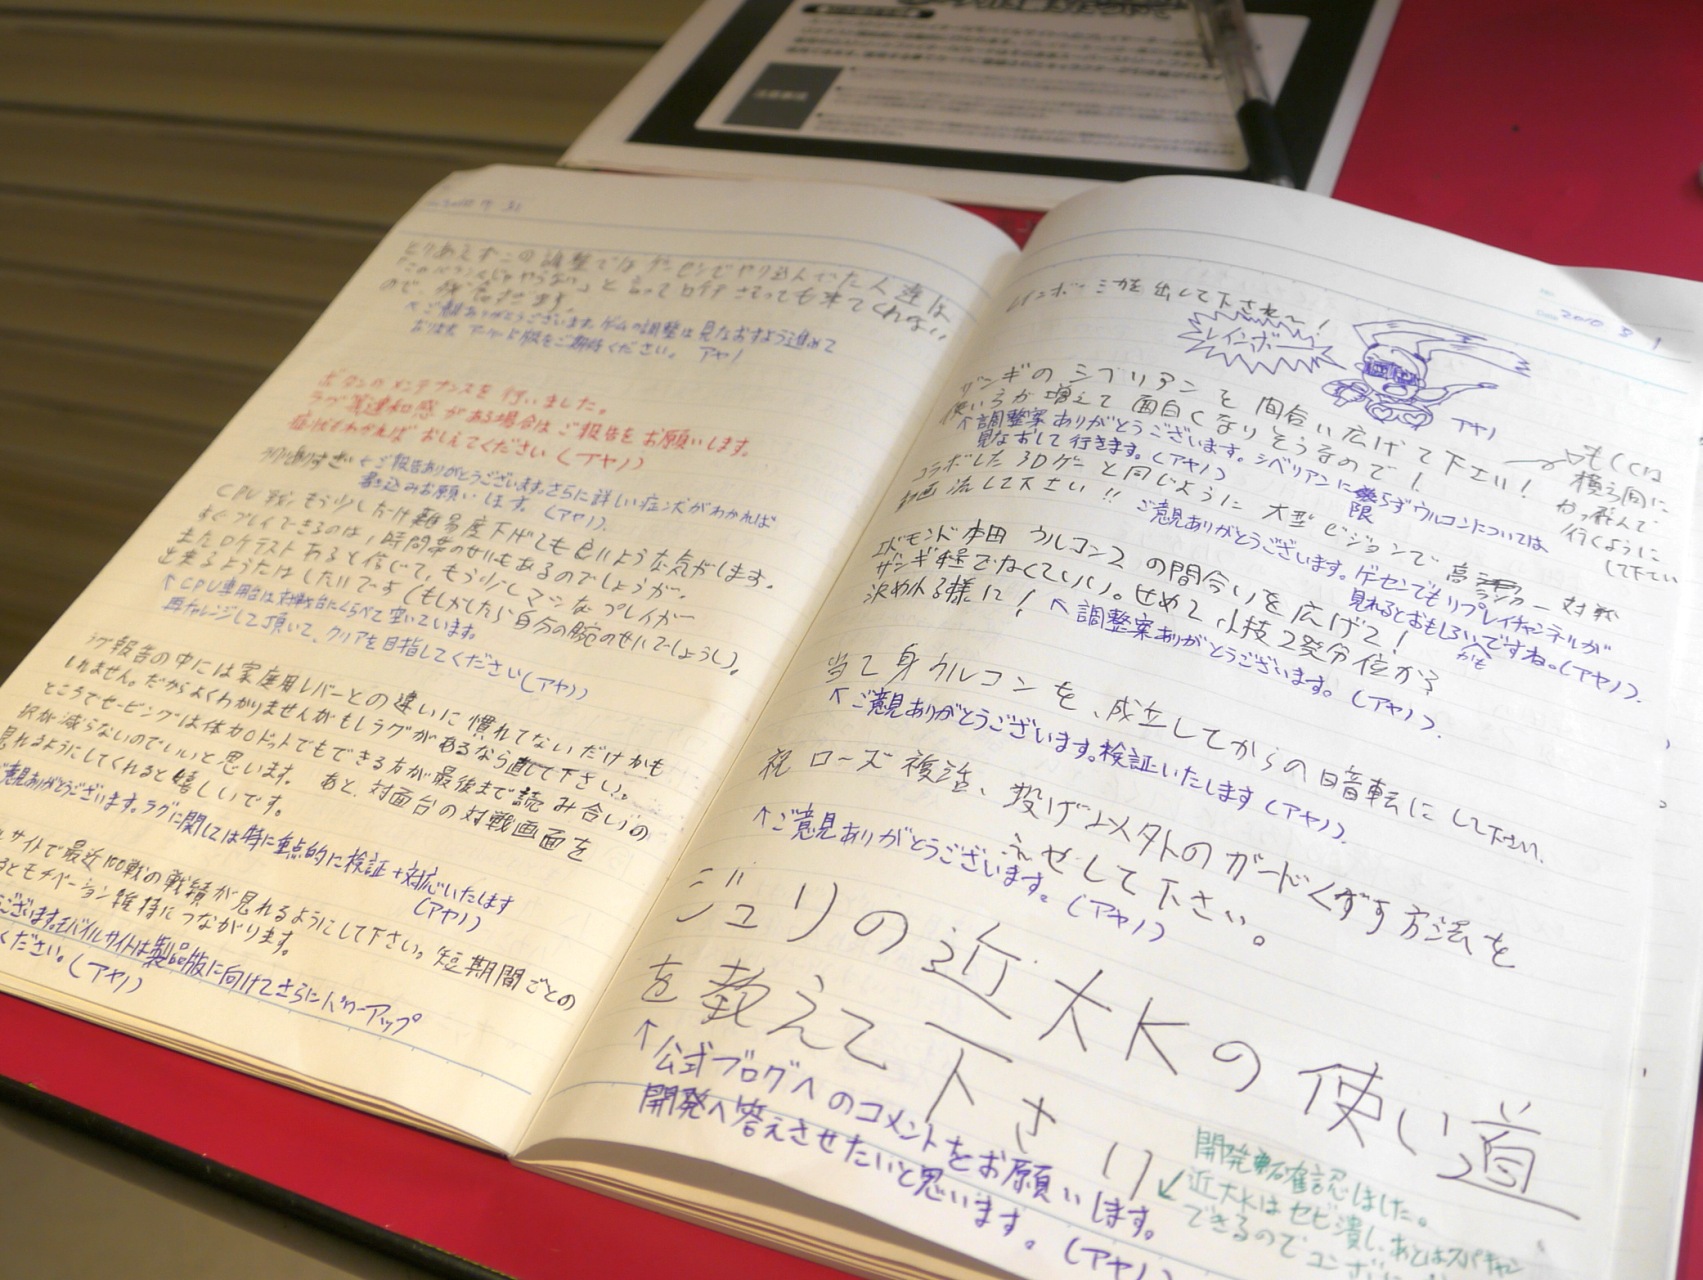 2010 7 31
とりあえずこの調整ではゲーセンでやり込んでた人達は
「このバランスじゃやらない」と言ってロケテさえっても来てくれない
ので、
↑ご意見ありがとうございます。ゲームの調整は見なおすよう進めて
おります アーケード版をご期待ください。 アヤノ
ボタンのメンテナンスを行いました。
ラグ等違和感がある場合はご報告をお願いします。
症状もわかればおしえてください(アヤノ)
←ご報告ありがとうございます。さらに詳しい症状がわかれば
書き込みお願いします。(アヤノ)
CPU戦、もう少しだけ難易度下げても良いような気がします。
すぐプレイできるのは、時間帯のせいもあるのでしょうが。
またロケテストあると信じて、もう少しマシなプレイが
出来るようたはしたいです(もしかしたら自分の腕のせいでしょうし)。
↑CPU専用台は対戦台にくらべて空いています。
再チャレンジして頂いて、クリアを目指してください(アヤノ)
ラグ報告の中には家庭用レバーとの違いに慣れてないだけかも
しれません。だからよくわかりませんがもしラグがあるなら直して下さい。
ところでセービングは体力0ドットでもできる方が最後まで読み合いの
択が減らないのでいいと思います。 あと、対面台の対戦画面を
見れるようにしてくれると嬉しいです。
ご意見ありがとうございます。ラグに関しては特に重点的に検証+対応いたします
(アヤノ)
サイトで最近100戦の戦績が見れるようにして下さい。短期間ごとの
るとモチベーション維持につながります。
ございます。モバイルサイトは製品版に向けてさらにパワーアップ
ください。(アヤノ)
2010 8 1
レインボーミカを出して下され〜!
レインボー!
アヤノ
ザンギのシブリアンを間合い広げて下さい!
使い方が増えて面白くなりそうなので!
→もしくは
横方向に
かっ飛んで
行くように
して下さい
↑調整案ありがとうございます。シベリアンに限らずウルコンについては
見なおして行きます。(アヤノ)
コラボした3Dゲーと同じように大型ビジョンで高ランカー対戦
動画流して下さい!!
ご意見ありがとうございます。ゲーセンでもリプレイチャンネルが
見れるとおもしろいかもですね。(アヤノ)
エドモンド本田 ウルコン2の間合いを広げて!
ザンギ程でなくていい。せめて小技2発分位から
決めれる様に!
↑調整案ありがとうございます。(アヤノ)
当て身ウルコンを、成立してからの暗転にして下さい。
↑ご意見ありがとうございます。検証いたします(アヤノ)
祝 ローズ復活、投げ以外のガードくずす方法を
ふせして下さい。
↑ご意見ありがとうございます。(アヤノ)
ジュリの近大Kの使い道
を教えて下さい
↑公式ブログへのコメントをお願いします。
開発へ答えさせたいと思います。(アヤノ)
開発陣に確認しました。
↙近大Kはセビ潰し、あとはスパキャン
できるのでコンボに